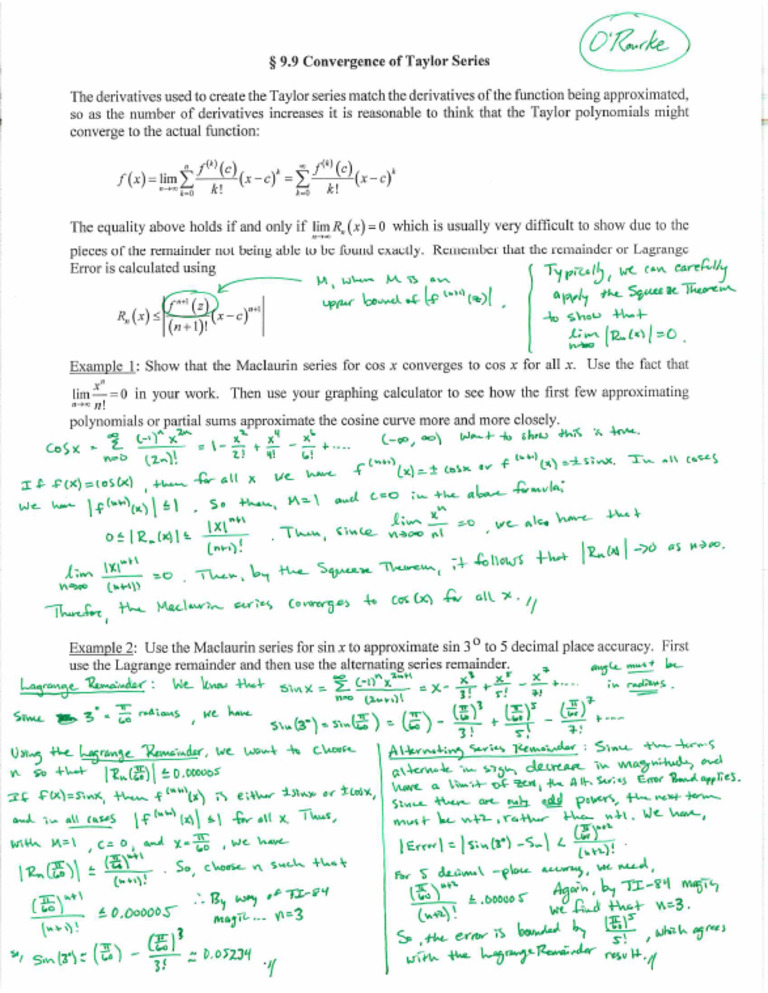 O'Rourke
§ 9.9 Convergence of Taylor Series
The derivatives used to create the Taylor series match the derivatives of the function being approximated,
so as the number of derivatives increases it is reasonable to think that the Taylor polynomials might
converge to the actual function:
f(x) = lim_{n→∞} ∑_{k=0}^{n} f^{(k)}(c)/k! (x−c)^k = ∑_{k=0}^{∞} f^{(k)}(c)/k! (x−c)^k
The equality above holds if and only if lim_{n→∞} R_n(x) = 0 which is usually very difficult to show due to the
pieces of the remainder not being able to be found exactly. Remember that the remainder or Lagrange
Error is calculated using
R_n(x) ≤ |f^{n+1}(z)/(n+1)! (x−c)^{n+1}|
M, where M is an
upper bound of |f^{(n+1)}(z)|.
Typically, we can carefully
apply the Squeeze Theorem
to show that
lim_{n→∞} |R_n(x)| = 0.
Example 1: Show that the Maclaurin series for cos x converges to cos x for all x. Use the fact that
lim_{n→∞} x^n/n! = 0 in your work. Then use your graphing calculator to see how the first few approximating
polynomials or partial sums approximate the cosine curve more and more closely.
cosx = ∑_{n=0}^{∞} (-1)^n x^{2n}/(2n)! = 1 - x^2/2! + x^4/4! - x^6/6! + .... (-∞, ∞) Want to show this is true.
If f(x)=cos(x), then for all x we have f^{(n+1)}(x)=± cosx or f^{(n+1)}(x)=±sinx. In all cases
We have |f^{(n+1)}(x)| ≤ 1. So then, M=1 and c=0 in the above formula;
0 ≤ |R_n(x)| ≤ |x|^{n+1}/(n+1)!. Then, since lim_{n→∞} x^n/n! = 0, we also have that
lim_{n→∞} |x|^{n+1}/(n+1)! = 0. Then, by the Squeeze Theorem, it follows that |R_n(x)| → 0 as n→∞.
Therefore, the Maclaurin series converges to cos(x) for all x. //
Example 2: Use the Maclaurin series for sin x to approximate sin 3° to 5 decimal place accuracy. First
use the Lagrange remainder and then use the alternating series remainder.
angle must be
in radians.
Lagrange Remainder: We know that sinx = ∑_{n=0}^{∞} (-1)^n x^{2n+1}/(2n+1)! = x - x^3/3! + x^5/5! - x^7/7! + ....
Since 3° = π/60 radians, we have sin(3°) = sin(π/60) = (π/60) - (π/60)^3/3! + (π/60)^5/5! - (π/60)^7/7! + ....
Using the Lagrange Remainder, we want to choose
n so that |R_n(π/60)| ≤ 0.000005
If f(x)=sinx, then f^{(n+1)}(x) is either ±sinx or ±cosx,
and in all cases |f^{(n+1)}(x)| ≤ 1 for all x. Thus,
with M=1, c=0, and x=π/60, we have
|R_n(π/60)| ≤ (π/60)^{n+1}/(n+1)!. So, choose n such that
(π/60)^{n+1}/(n+1)! ≤ 0.000005
∴ By way of TI-84
magic... n=3
so, sin(3°) ≈ (π/60) - (π/60)^3/3! ≈ 0.05234 //
Alternating Series Remainder: Since the terms
alternate in sign, decrease in magnitude, and
have a limit of zero, the Alt. Series Error Bound applies.
Since there are only odd powers, the next term
must be n+2, rather than n+1. We have,
|Error| = |sin(3°) - S_n| < (π/60)^{n+2}/(n+2)!.
For 5 decimal-place accuracy, we need,
(π/60)^{n+2}/(n+2)! ≤ .000005
Again, by TI-84 magic,
we find that n=3.
So, the error is bounded by (π/60)^5/5!, which agrees
with the Lagrange Remainder result. //